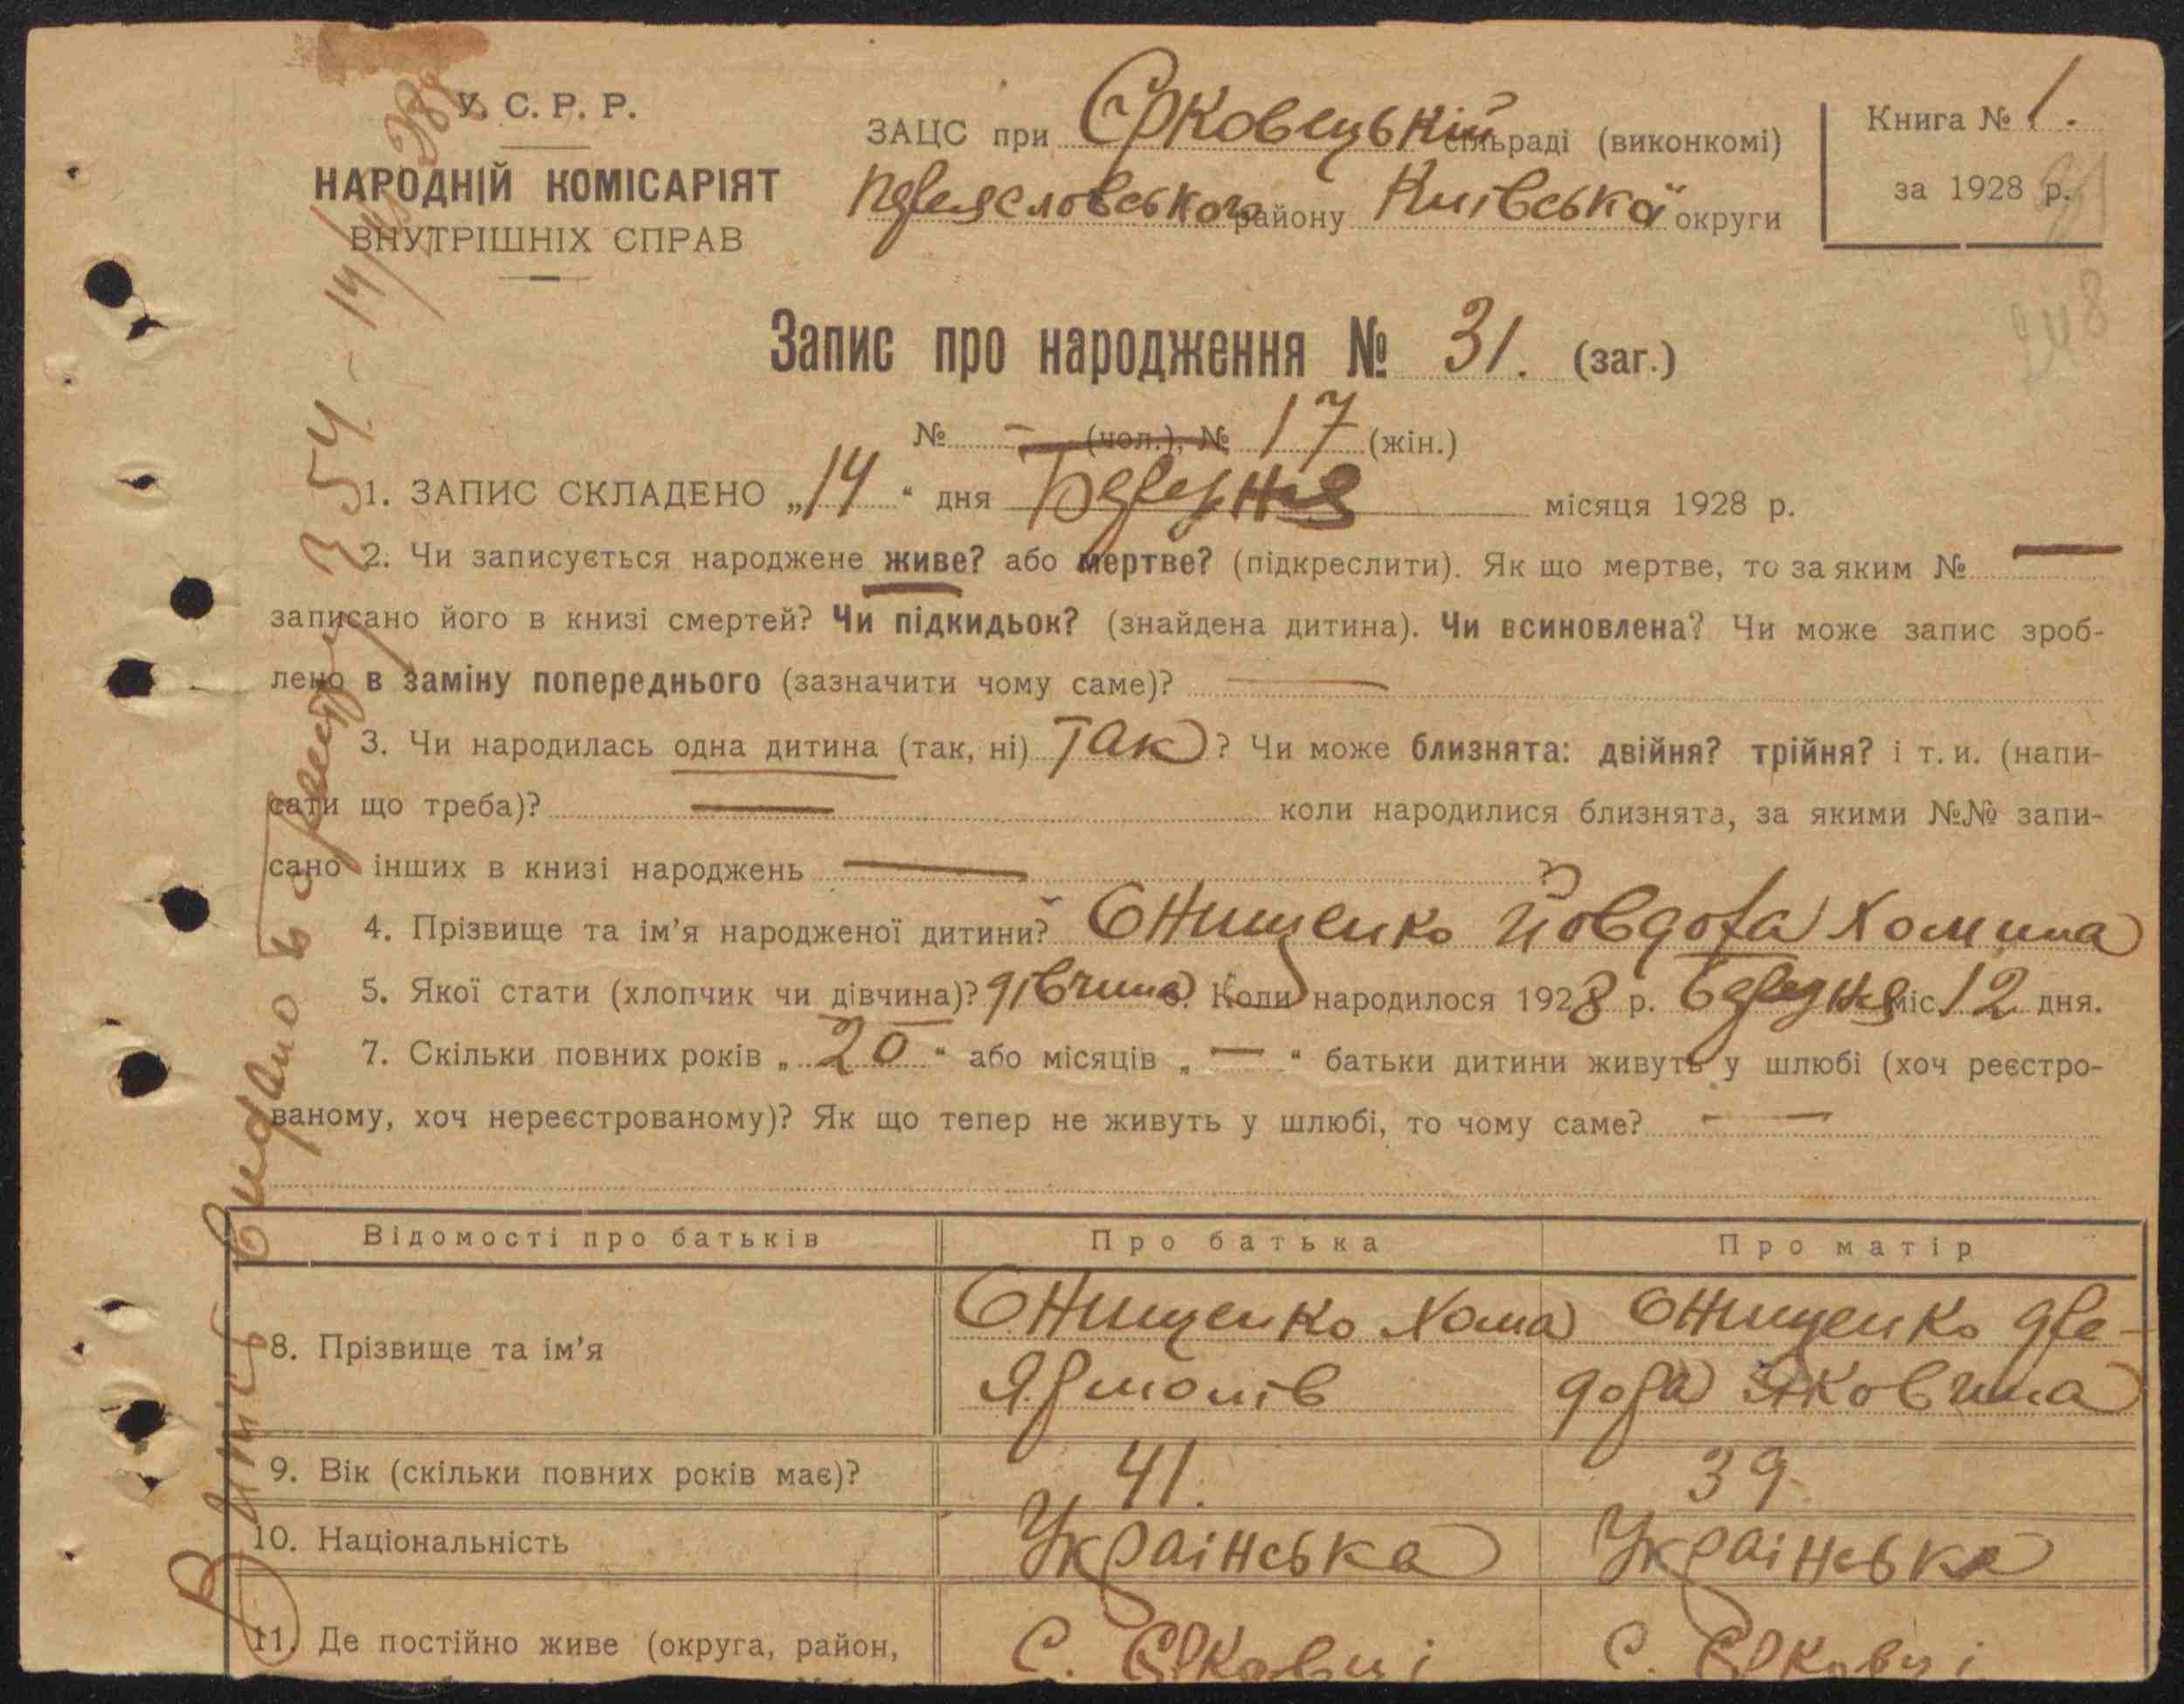 У. С. Р. Р.
НАРОДНІЙ КОМІСАРІЯТ
ВНУТРІШНІХ СПРАВ
ЗАЦС при Єрковецькій сільраді (виконкомі)
Переясловського району Київської округи
Книга № 1.
за 1928 р.
248
Запис про народження № 31. (заг.)
№ – (чол.), № 17 (жін.)
1. ЗАПИС СКЛАДЕНО „14“ дня Березня місяця 1928 р.
2. Чи записується народжене живе? або мертве? (підкреслити). Як що мертве, то за яким № —
записано його в книзі смертей? Чи підкидьок? (знайдена дитина). Чи всиновлена? Чи може запис зроб-
лено в заміну попереднього (зазначити чому саме)? —
3. Чи народилась одна дитина (так, ні) Так? Чи може близнята: двійня? трійня? і т. и. (напи-
сати що треба)? — коли народилися близнята, за якими №№ запи-
сано інших в книзі народжень —
4. Прізвище та ім'я народженої дитини? Онищенко Йовдоха Хомина
5. Якої стати (хлопчик чи дівчина)? дівчина 6. Коли народилося 1928 р. Березня міс. 12 дня.
7. Скільки повних років „20“ або місяців „—“ батьки дитини живуть у шлюбі (хоч реєстро-
ваному, хоч нереєстрованому)? Як що тепер не живуть у шлюбі, то чому саме? —
Відомості про батьків Про батька Про матір
8. Прізвище та ім'я Онищенко Хома Онищенко
Яковина
9. Вік (скільки повних років має)? 41. 39.
10. Національність Українська Українська
11. Де постійно живе (округа, район, С. Єрковці С. Єрковці
Видано